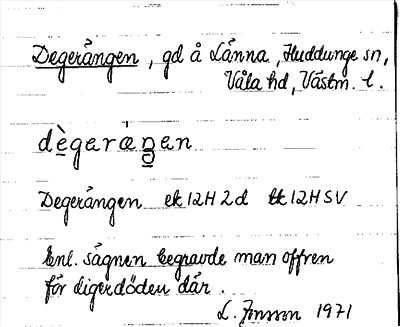 Degerången, gd å Länna, Huddunge sn,
Våla hd, Västm. l.
dègeráŋen
Degerången ek 12H2d tk 12H SV
Enl. sägnen begravde man offren
för digerdöden där.
L. Jonsson 1971